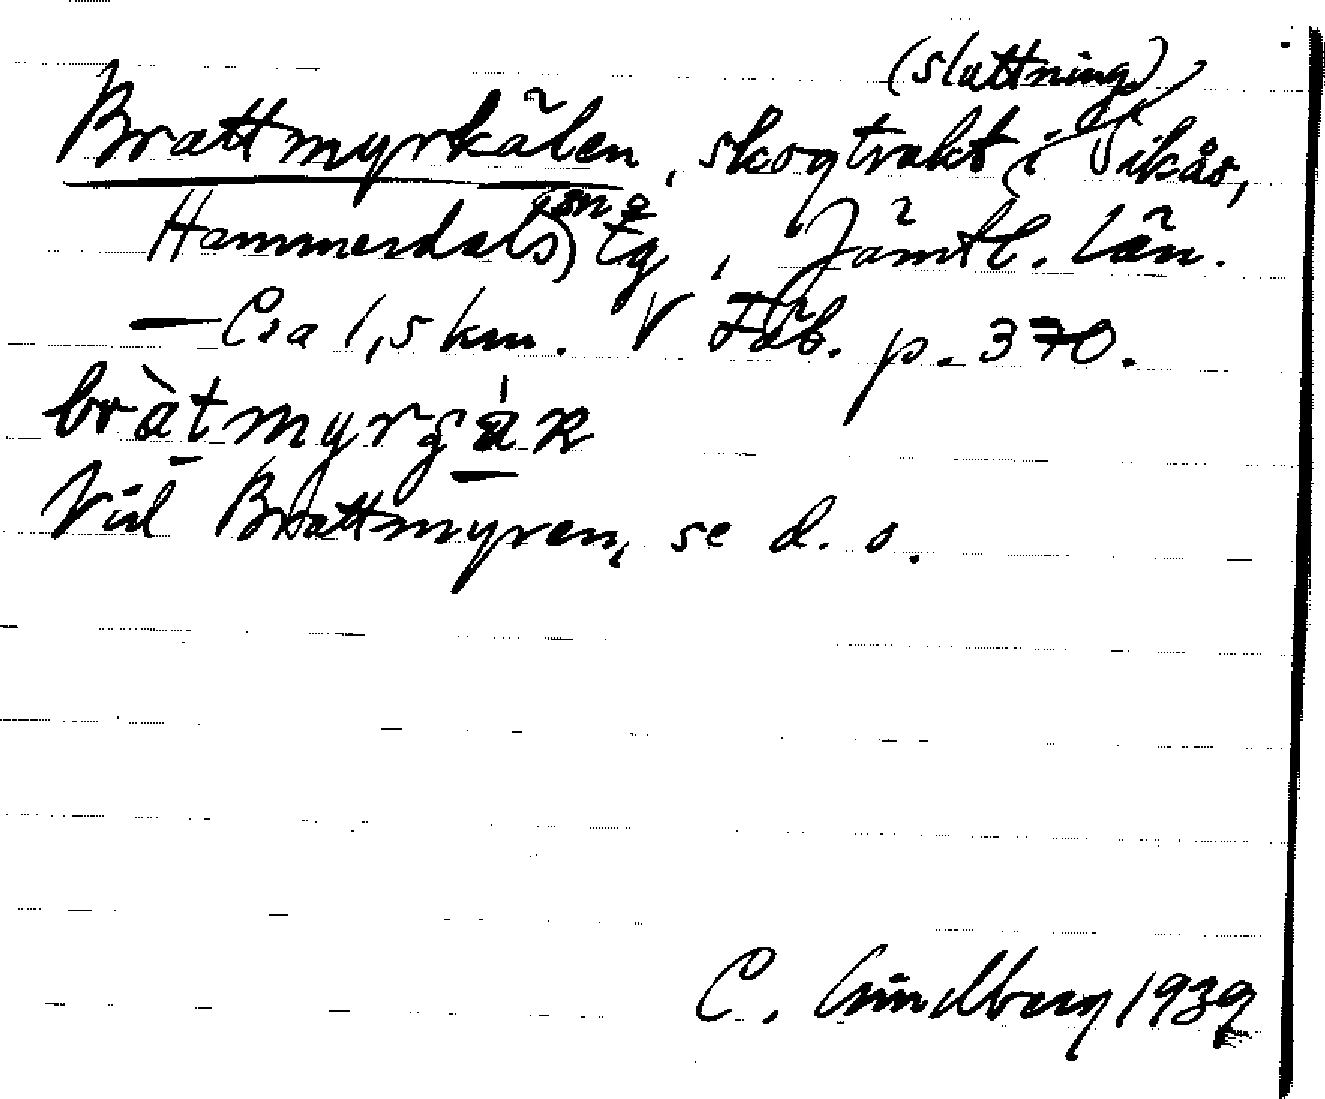 (sluttning)
Brattmyrkälen, skogtrakt i Sikås,
Hammerdals sn o tg, Jämtl. län.
— Cra 1,5 km. V Fäb. p. 370.
bràtmyrgák
Vid Brattmyren, se d. o.
C. Lindberg 1939